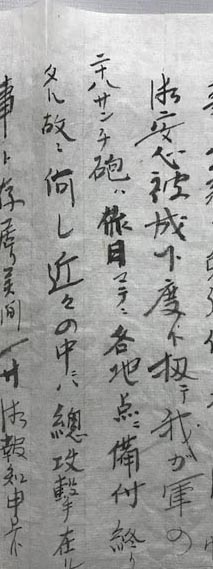 御安心被成下度候扨テ我が軍の
二十八サンチ砲ハ昨日マテニ各地点ニ備付終リ
タル故ニ何し近々の中ニハ總攻撃在ル
事ト存居リ候間一寸御報知申上候